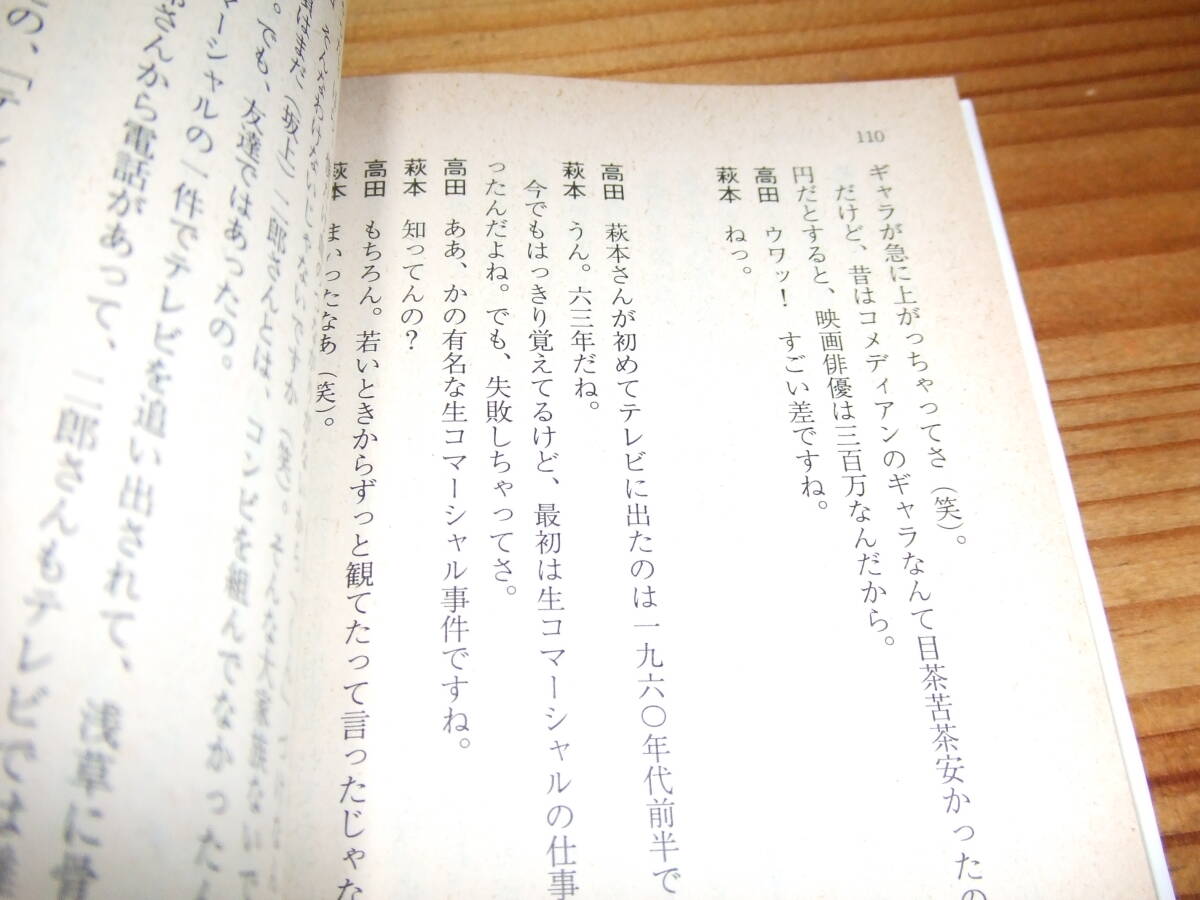 110
ギャラが急に上がっちゃってさ（笑）。
だけど、昔はコメディアンのギャラなんて目茶苦茶安かったの
円だとすると、映画俳優は三百万なんだから。
高田　ウワッ！　すごい差ですね。
萩本　ねっ。
高田　萩本さんが初めてテレビに出たのは一九六〇年代前半で
萩本　うん。六三年だね。
今でもはっきり覚えてるけど、最初は生コマーシャルの仕事
ったんだよね。でも、失敗しちゃってさ。
高田　ああ、かの有名な生コマーシャル事件ですね。
萩本　知ってんの？
高田　もちろん。若いときからずっと観てたって言ったじゃな
萩本　まいったなあ（笑）。
そんなわけないじゃないですか（笑）。そんな大家族ないで
はまだ（坂上）二郎さんとは、コンビを組んでなかったん
。でも、友達ではあったの。
マーシャルの一件でテレビを追い出されて、浅草に
さんから電話があって、二郎さんもテレビでは
の、「テレ